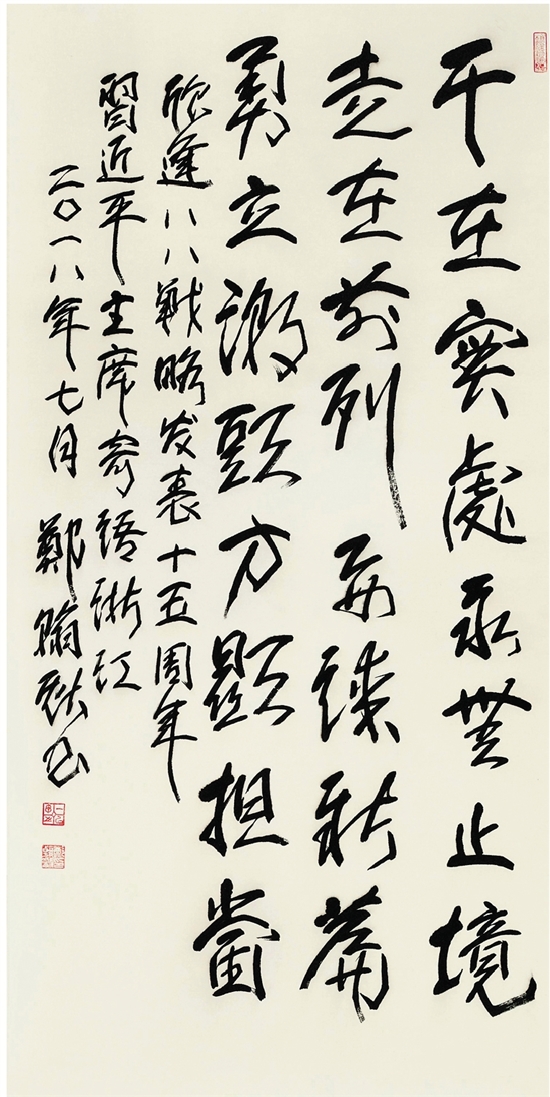 干在實處永無止境
走在前列要謀新篇
勇立潮頭方顯担當
欣逢八八戰略发表十五周年
習近平主席寄語浙江
二〇一八年七月鄭翰献书